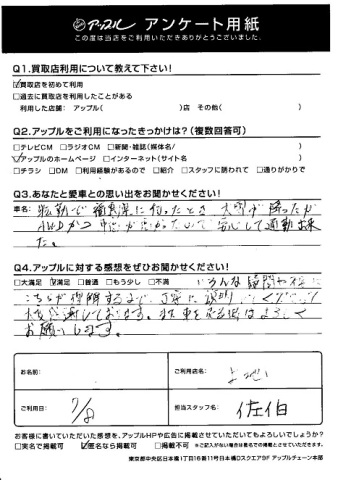 アップル アンケート用紙
この度は当店をご利用いただきありがとうございました。
Q1.買取店利用について教えて下さい!
☑買取店を初めて利用
□過去に買取店を利用したことがある
利用した店舗: アップル( )店 その他( )
Q2.アップルをご利用になったきっかけは?(複数回答可)
□テレビCM □ラジオCM □新聞・雑誌(媒体名/ )
☑アップルのホームページ □インターネット(サイト名 )
□チラシ □DM □利用経験があるので □紹介 □スタッフに誘われて □通りがかりで
Q3.あなたと愛車との思い出をお聞かせください!
車名: 転勤で福島県に行ったとき 大雪が降ったが
AWDかつ 安心して通勤出来
た。
Q4.アップルに対する感想をぜひお聞かせください!
□大満足 ☑満足 □普通 □もう少し □不満 いろんな疑問や
こちらが理解するまで、丁寧に説明して
大変感謝しております。また車を売る際はよろしく
お願いします。
お名前:
ご利用店名:
ご利用日: 7/8
担当スタッフ名: 佐伯
お客様に書いていただいた感想を、アップルHPや広告に掲載させていただいてもよろしいでしょうか?
□実名で掲載可 ☑匿名なら掲載可 □掲載不可 ※ご記入がない場合は匿名での掲載とさせていただきます。
東京都中央区日本橋1丁目16番11号日本橋Dスクエア8F アップルチェーン本部